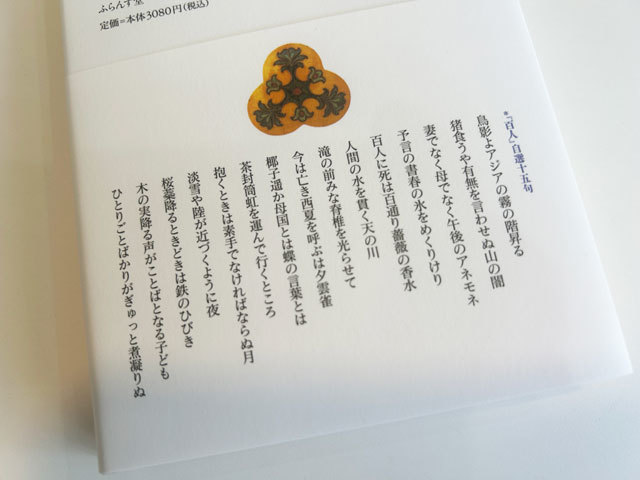 ふらんす堂
定価=本体3080円(税込)
*「百人」自選十五句
鳥影よアジアの霧の階昇る
猪食うや有無を言わせぬ山の闇
妻でなく母でなく午後のアネモネ
予言の書春の氷をめくりけり
百人に死は百通り薔薇の香水
人間の水を貫く天の川
滝の前みな脊椎を光らせて
今は亡き西夏を呼ぶは夕雲雀
椰子遥か母国とは蝶の言葉とは
茶封筒虹を運んで行くところ
抱くときは素手でなければならぬ月
淡雪や陸が近づくように夜
桜蘂降るときどきは鉄のひびき
木の実降る声がことばとなる子ども
ひとりごとばかりがぎゅっと煮凝りぬ